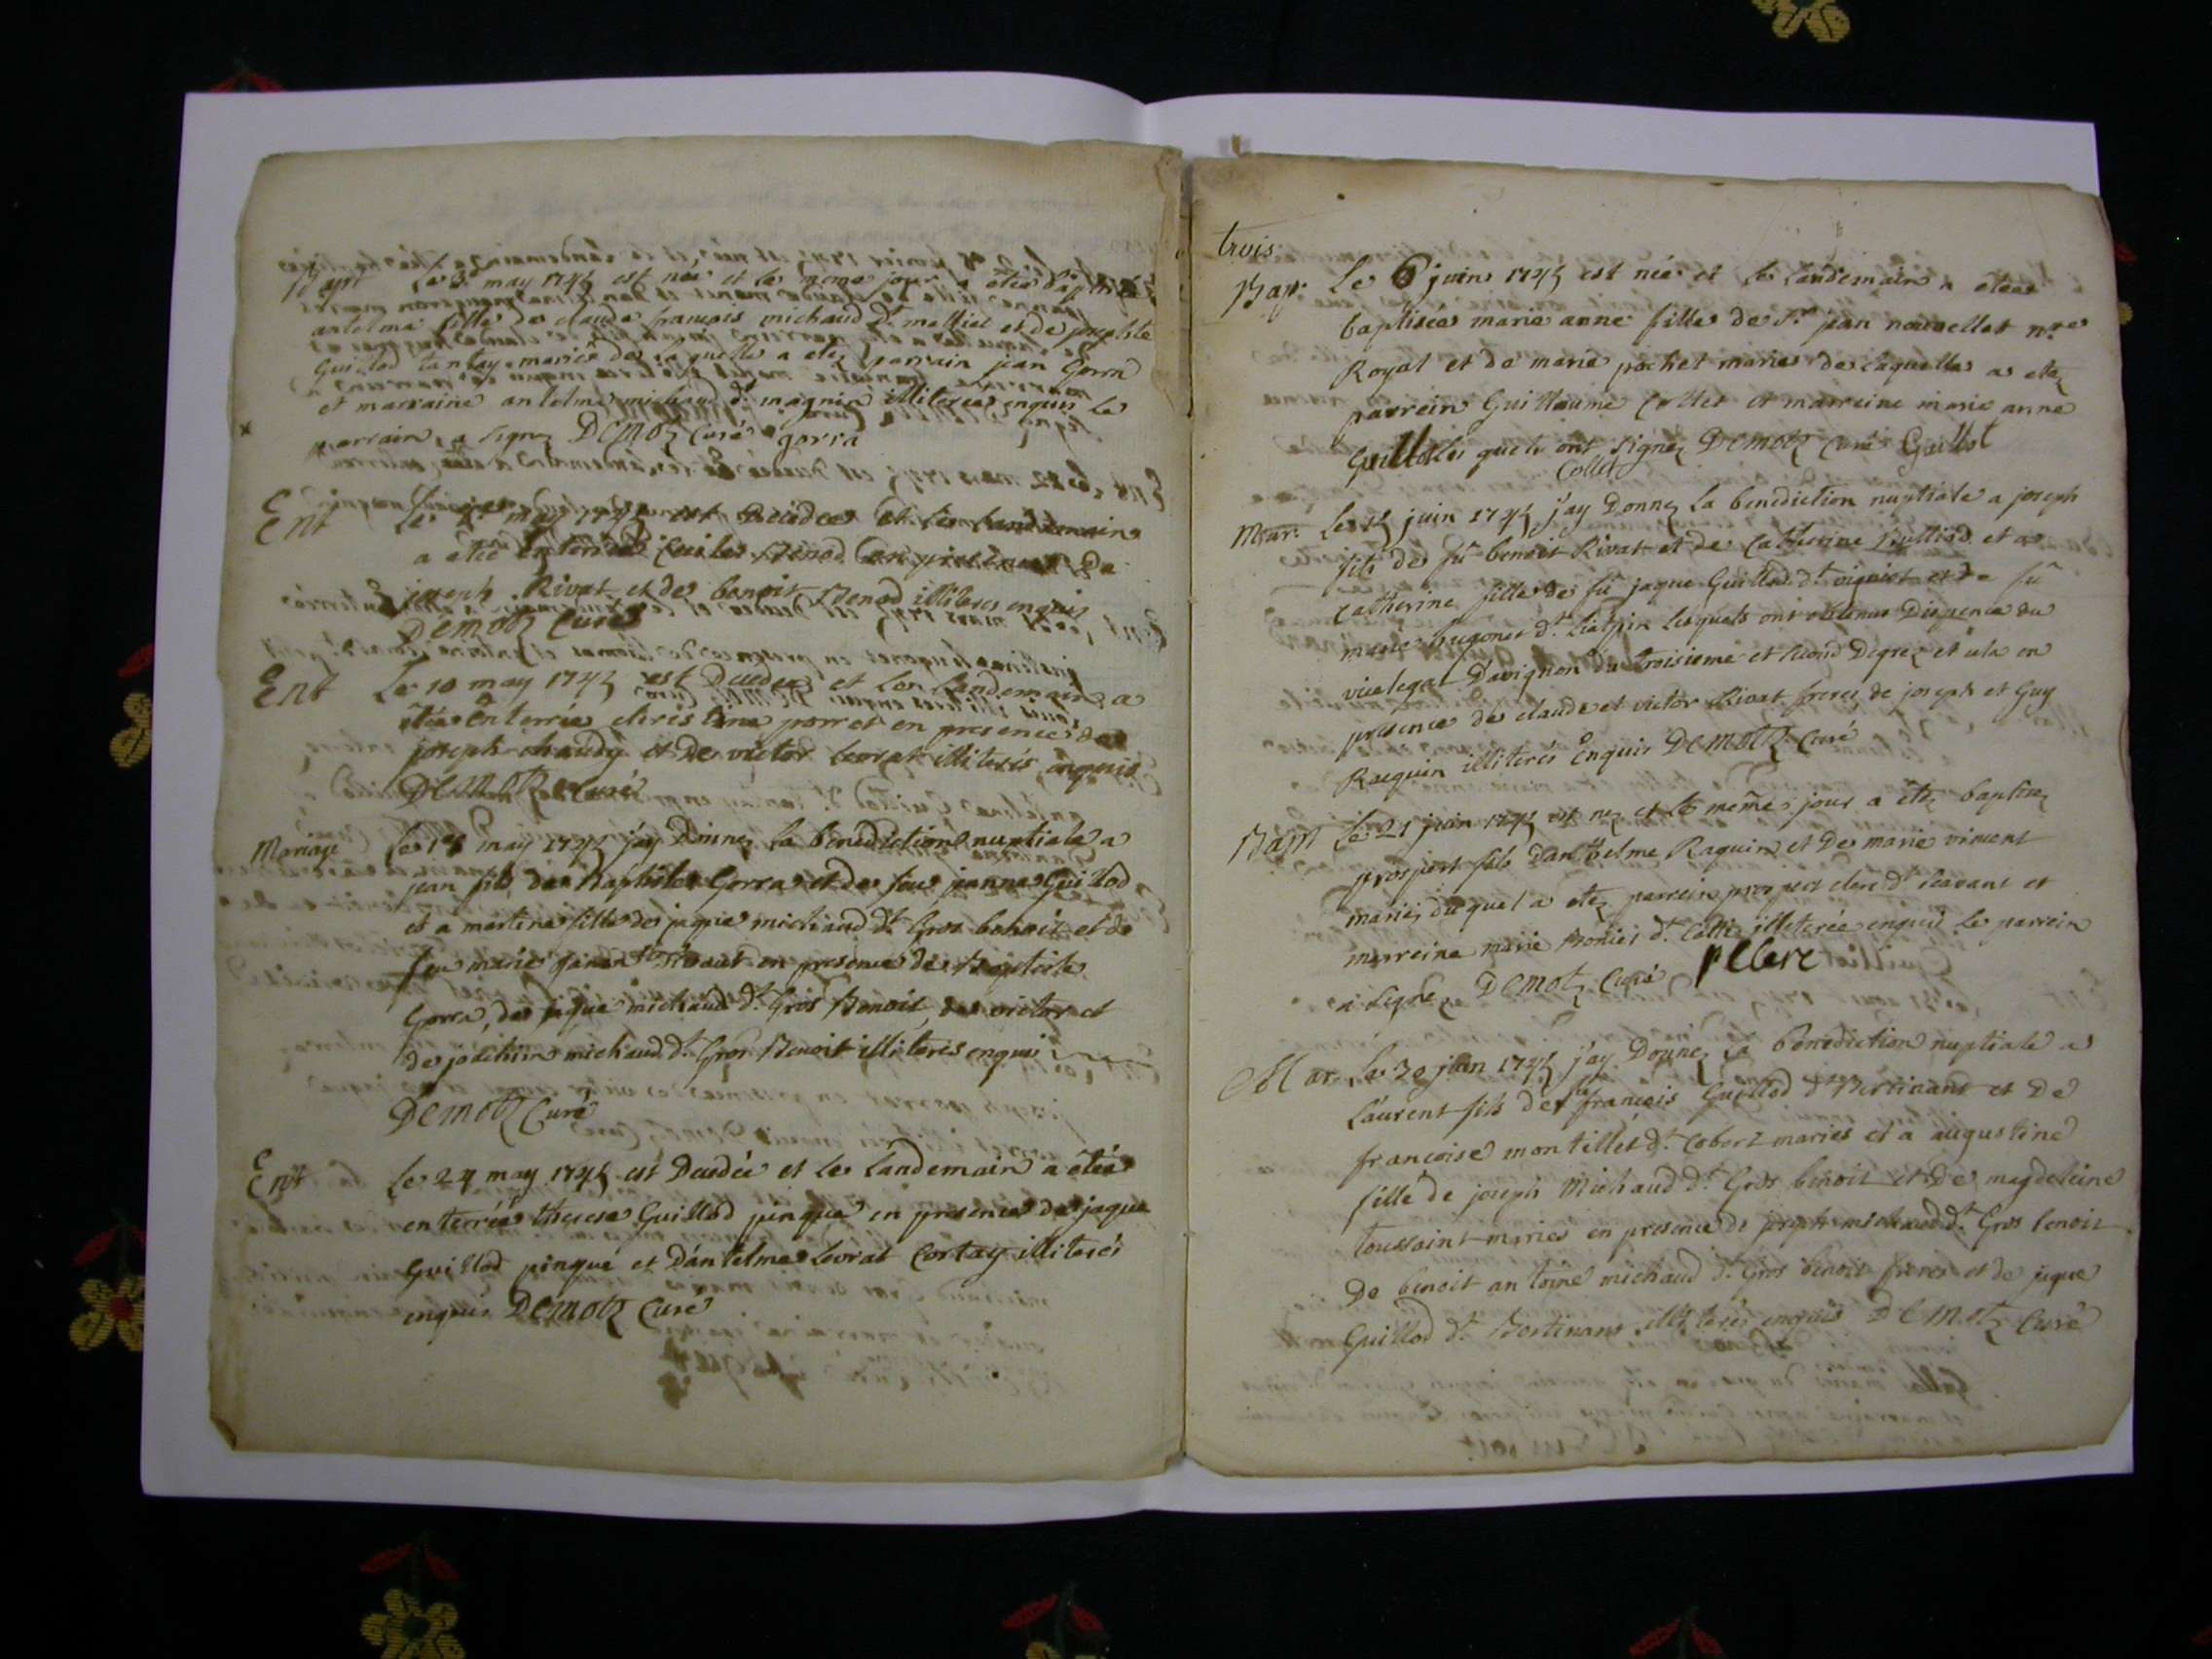 Bapt Le 3e may 1745 est née et le meme jour a étée baptisée
antelma fille de claude françois michaud dt. mattiet et de josephte
Guillod tantay mariés de laquelle a etez parrain jean Gorra
et marraine antelma michaud dt. magnin illiterée enquis le
parrain, a signez Demotz Curé gorra
Ent Le may 1745 est decedee et le landemain
a étée enterrée Benod en presence de
joseph Rivat et de benoit Benod illiteres enquis
Demotz Curé
Ent Le 10 may 1745 est Decedee et le landemain a
étée enterrée christina porret en presence de
joseph chaudy et de victor levrat illiterés enquis
Demotz Curé
Mariage Le may 1745 j'ay Donnez la benediction nuptiale a
jean fils de Baptiste Gorra et de feue janna Guillod
et a martina fille de jaque michaud dt. Gros benoit et de
feu marie en presence de Baptiste
Gorra, de jaque michaud dt. Gros Benoit, de victor et
de joachim michaud dt. Gros Benoit illiteris enquis
Demotz Curé
Ent Le 24 may 1745 est Decedée et le landemain a étée
enterrée therese Guillod pinque en presence de jaque
Guillod pinque et D'antelme levrat Cortay illiterés
enquis Demotz Curé
trois
Bap: Le 6 juin 1745 est née et le landemain a étée
baptisée marie anne fille de Sr. jean nouvellet nre.
Royal et de marie pochet mariés de laquelle a etez
parrein Guillaume Collet et marreine marie anne
Guillot lesquels ont signez Demotz Curé Guillot
Collet
Mar: Le 15 juin 1745 j'ay Donnez la benediction nuptiale a joseph
fils de fû benoit Rivat et de Catherine Bulliod et a
Catherine fille de fû jaque Guillod dt. viguiet et de fû
marie hugonet dt. lesquels ont obtenus Dispence du
vicelegat D'avignon du troisieme et second Degrez et cela en
presence de claude et victor Rivat freres de joseph et Guy
Racquin illiterés enquis Demotz Curé
Bapt Le 21 juin 1745 est nez et le même jour a étez baptisez
prospert fils Danthelme Raquin et De marie vincent
mariés duquel a etez parrein prospert clerc dt. scavant et
marreine marie dt. Collie illeterée enquis le parrein
a signez Demotz Curé p clerc
Mar Le 30 juin 1745 j'ay Donnez la benediction nuptiale a
Laurent fils de françois Guillod dt Bertinant et De
francoise montillet dt. Cobert mariés et a augustine
fille de joseph Michaud dt. Gros benoit et De magdeleine
toussaint mariés en presence de joseph michaud dt. Gros benoit
De benoit antoine michaud dt. Gros benoit freres et de jaque
Guillod dt. Bertinant illiterés enquis Demotz Curé